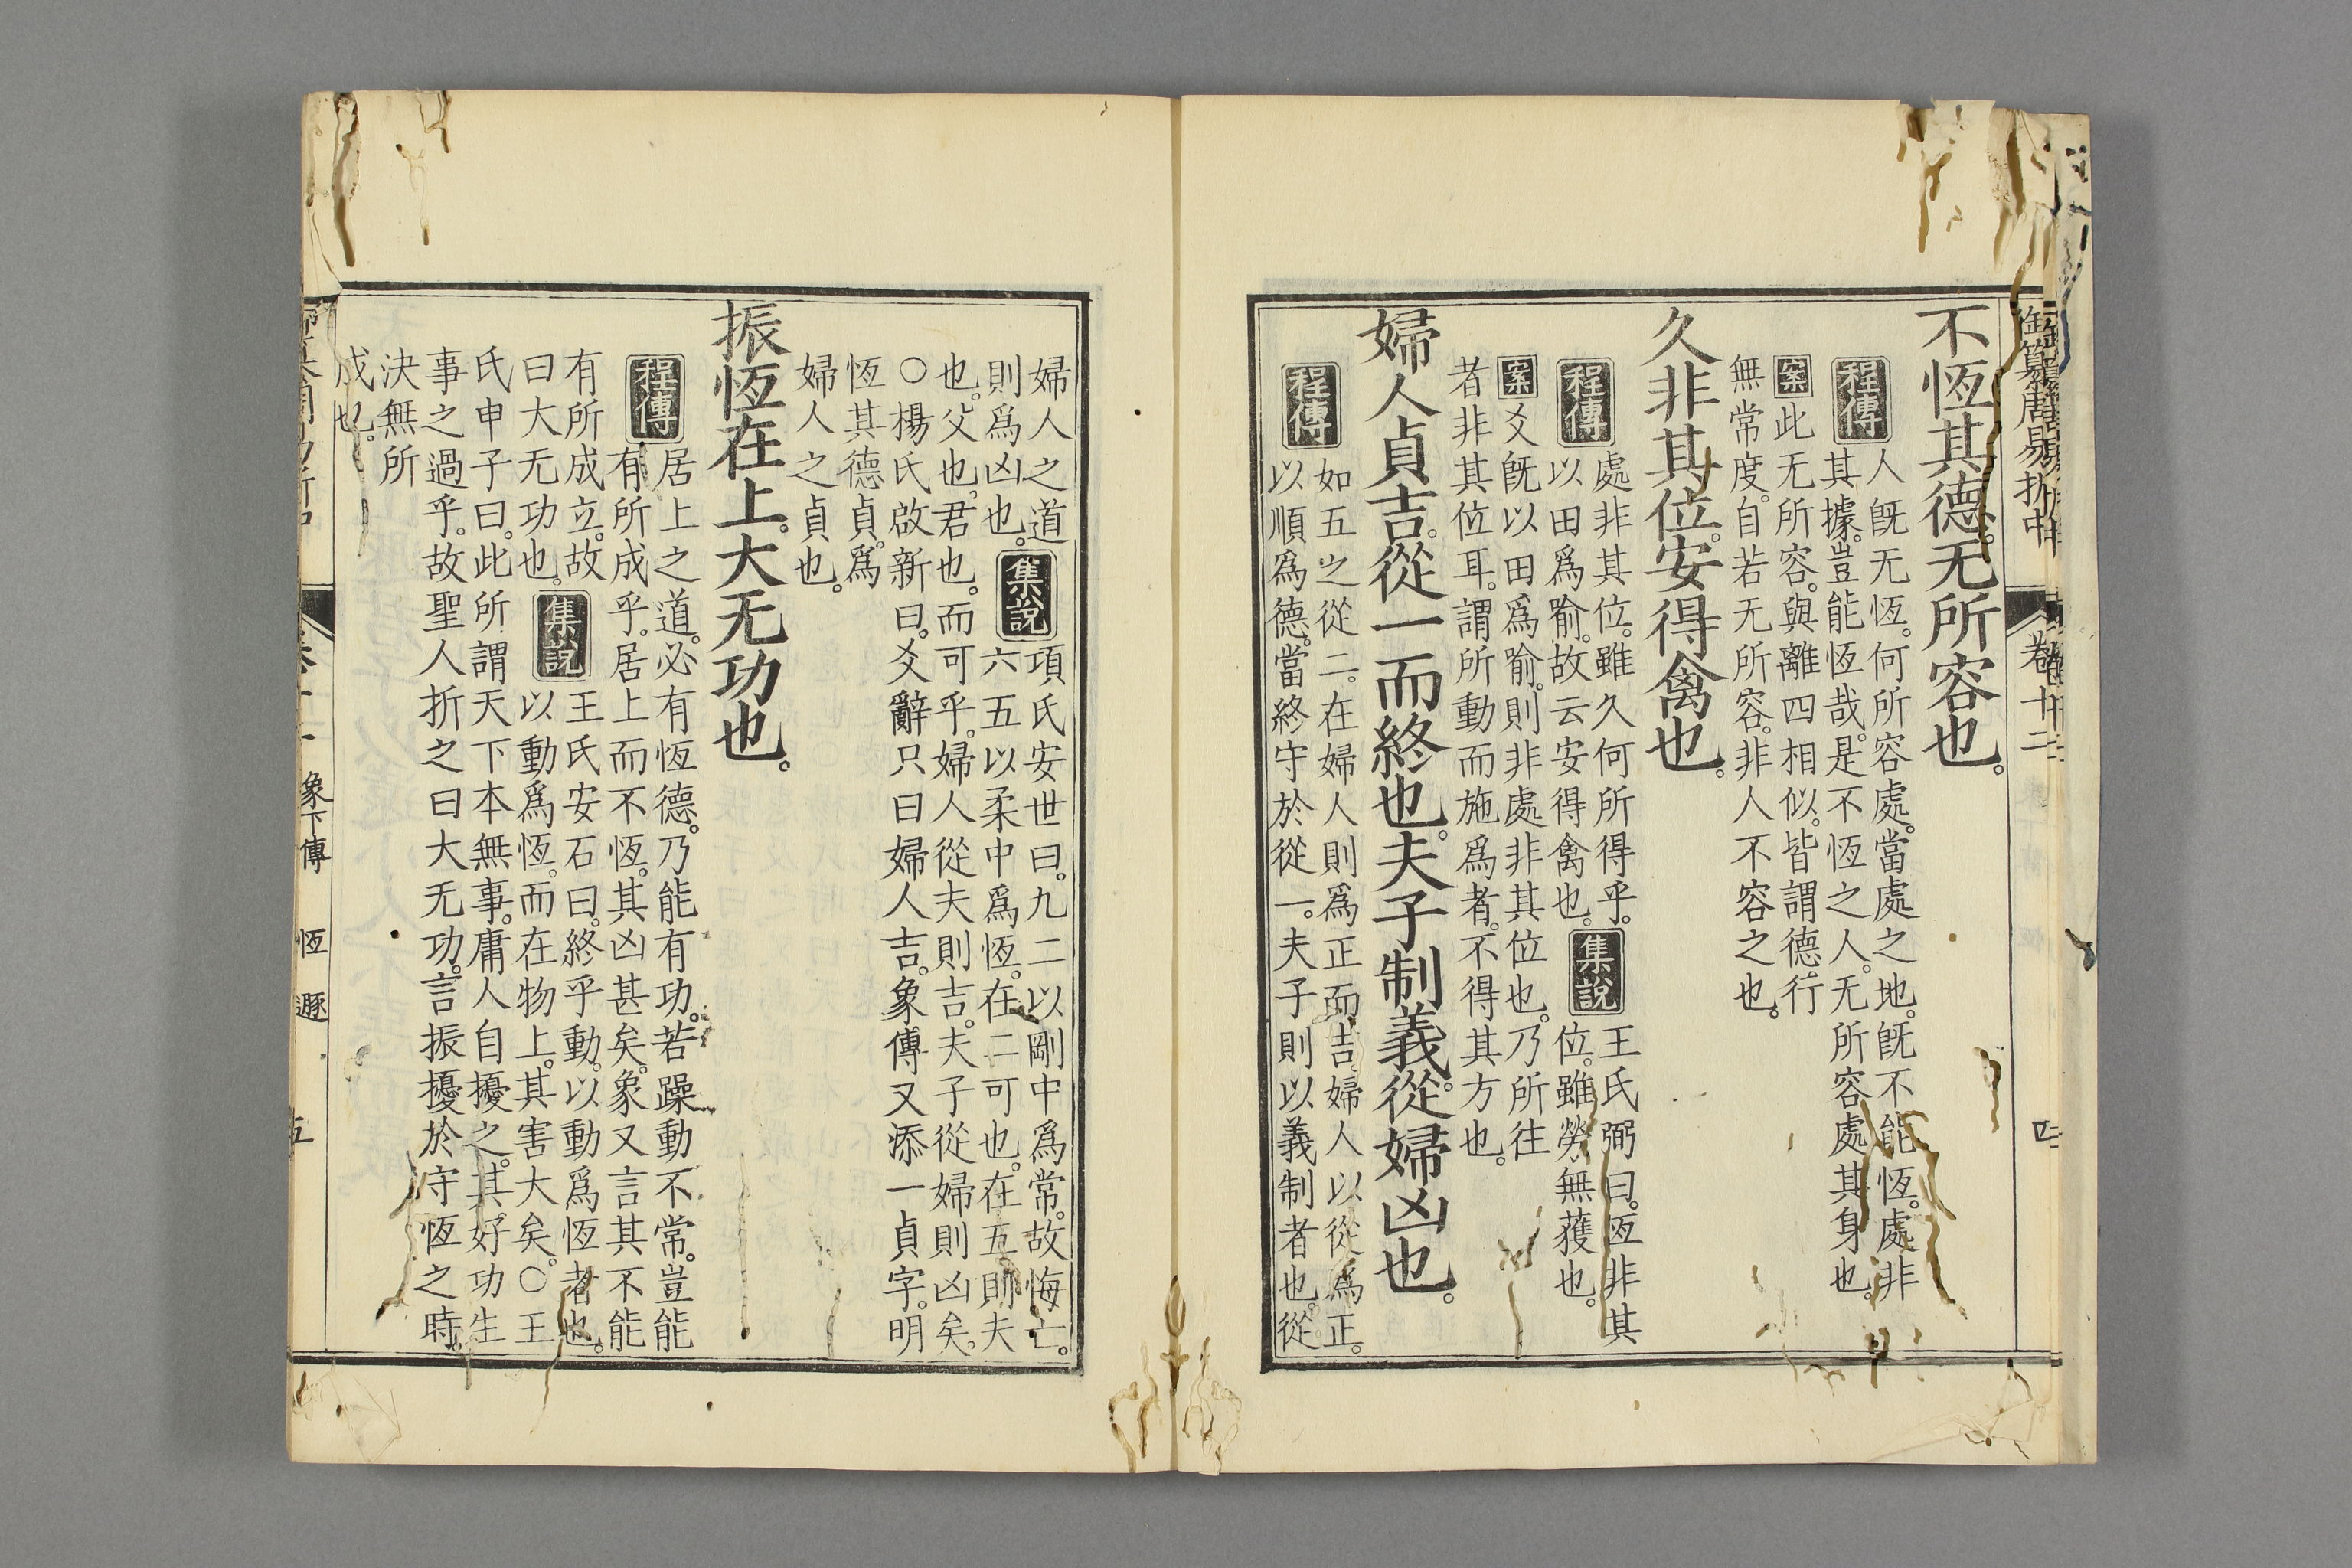 御纂周易折中
卷十二
四
不恆其德。无所容也。
程傳
人既无恆。何所容處。當處之地。既不能恆。處非
其據。豈能恆哉。是不恆之人。无所容處其身也。
案此无所容。與離四相似。皆謂德行
無常度。自若无所容。非人不容之也。
久非其位。安得禽也。
程傳
處非其位。雖久何所得乎。
以田為喻。故云安得禽也。
集說
王氏弼曰。恆非其
位。雖勞無獲也。
案爻既以田爲喻。則非處非其位也。乃所往
者非其位耳。謂所動而施爲者。不得其方也。
婦人貞吉。從一而終也。夫子制義。從婦凶也。
程傳
如五之從二。在婦人則爲正而吉。婦人以從爲正。
以順爲德。當終守於從一。夫子則以義制者也。從
婦人之道
則爲凶也。
集說
項氏安世曰。九二以剛中爲常。故悔亡。
六五以柔中爲恆。在二可也。在五則夫
也。父也。君也。而可乎。婦人從夫則吉。夫子從婦則凶矣。
○楊氏啟新曰。爻辭只曰婦人吉。象傳又添一貞字。明
恆其德貞。爲
婦人之貞也。
振恆在上。大无功也。
程傳
居上之道。必有恆德。乃能有功。若躁動不常。豈能
有所成乎。居上而不恆。其凶甚矣。象又言其不能
有所成立。故
曰大无功也。
集說
王氏安石曰。終乎動。以動爲恆者也。
以動爲恆。而在物上。其害大矣。○王
氏申子曰。此所謂天下本無事。庸人自擾之。其好功生
事之過乎。故聖人折之曰大无功。言振擾於守恆之時。
決無所
成也。
象下傳 恆 遯
五